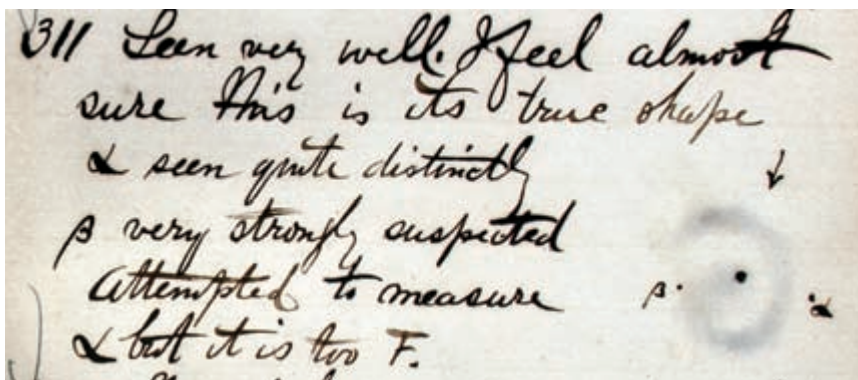 311 Seen very well. I feel almost
sure this is its true shape
α seen quite distinctly
β very strongly suspected
Attempted to measure
α but it is too F.
β. .α